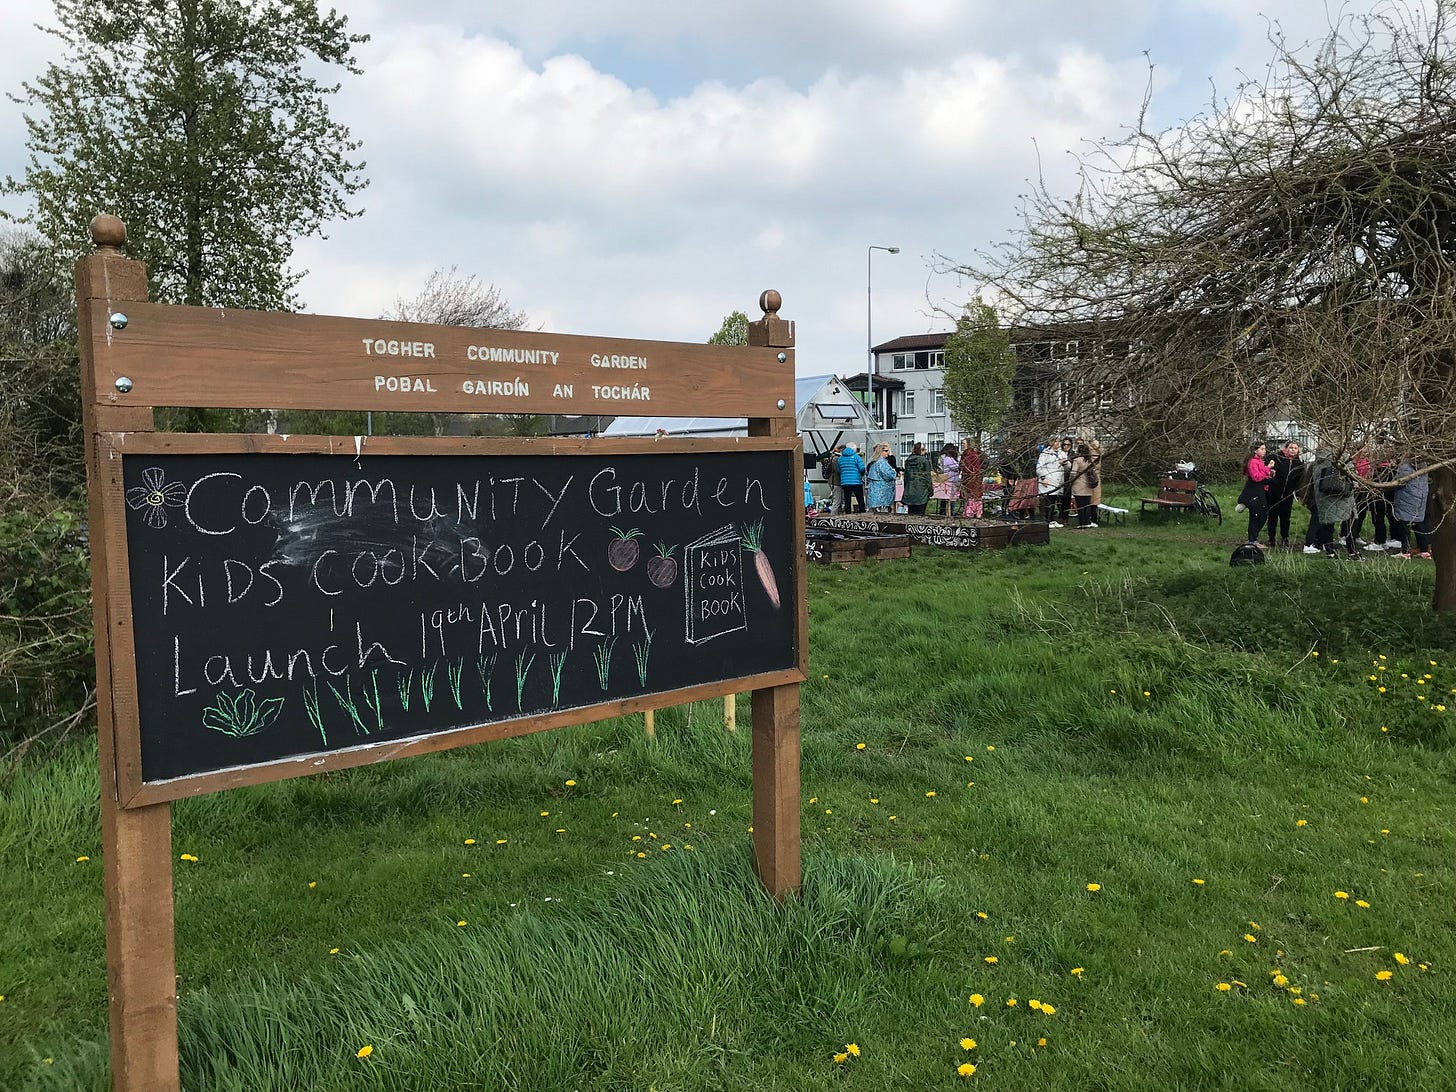 TOGHER COMMUNITY GARDEN
POBAL GAIRDÍN AN TOCHÁR
Community Garden
KiDS Cook Book
Launch 19th April 12 PM
KiDS
COOK
BOOK